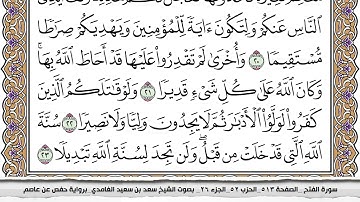 النَّاسِ عَنكُمْ وَلِتَكُونَ ءَايَةً لِّلْمُؤْمِنِينَ وَيَهْدِيَكُمْ صِرَٰطًا
مُّسْتَقِيمًا ٢٠ وَأُخْرَىٰ لَمْ تَقْدِرُوا۟ عَلَيْهَا قَدْ أَحَاطَ ٱللَّهُ بِهَا ۚ
وَكَانَ ٱللَّهُ عَلَىٰ كُلِّ شَىْءٍ قَدِيرًا ٢١ وَلَوْ قَٰتَلَكُمُ ٱلَّذِينَ
كَفَرُوا۟ لَوَلَّوُا۟ ٱلْأَدْبَٰرَ ثُمَّ لَا يَجِدُونَ وَلِيًّا وَلَا نَصِيرًا ٢٢ سُنَّةَ
ٱللَّهِ ٱلَّتِى قَدْ خَلَتْ مِن قَبْلُ ۖ وَلَن تَجِدَ لِسُنَّةِ ٱللَّهِ تَبْدِيلًا ٢٣
سورة الفتح _ الصفحة ٥١٣ _ الحزب ٥٢ _ الجزء ٢٦ _ بصوت الشيخ سعد بن سعيد الغامدي _ برواية حفص عن عاصم